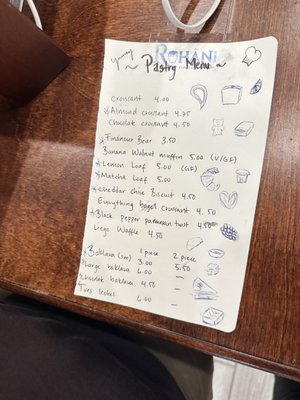 Yummy
ROHANI
~ Pastry Menu ~
Croissant 4.00
* Almond croissant 4.75
Chocolat croissant 4.50
* Financier Bear 3.50
Banana Walnut muffin 5.00 (V/GF)
* Lemon Loaf 5.00 (GF)
* Matcha Loaf 5.00
* Cheddar chive Biscuit 4.50
Everything bagel croissant 4.50
* Black pepper parmesan twist 4.50
Liege Waffle 4.50
1 piece 2 piece
* Baklava (sm) 3.00 5.50
Large baklava 6.00 —
Chocolat baklava 4.50 —
Tres leches 6.00 —